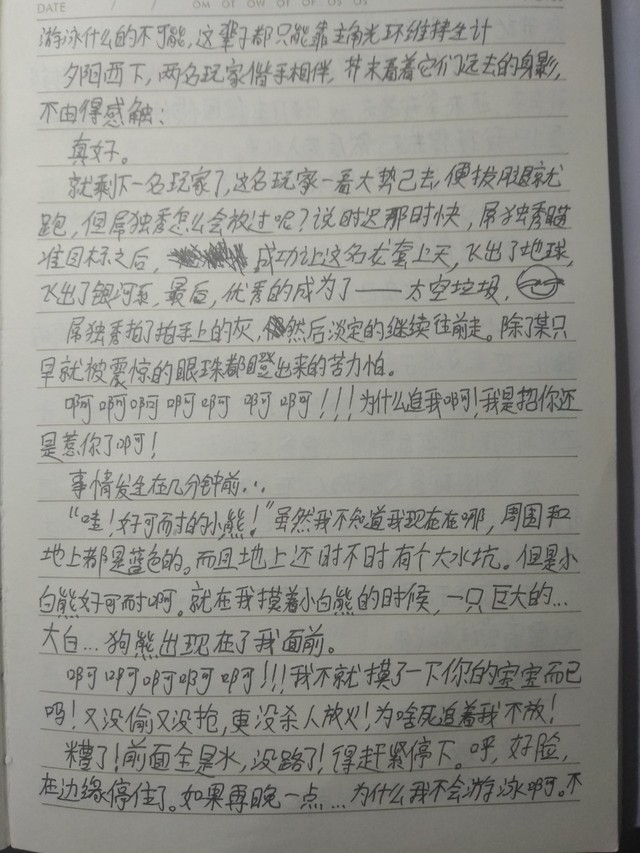 DATE / /
游泳什么的不可能，这辈子都只能靠主角光环维持生计
夕阳西下，两名玩家偕手相伴，芥末看着它们远去的身影，
不由得感触：
真好。
就剩下一名玩家了，这名玩家一看大势已去，便拔腿就
跑，但屌独秀怎么会放过呢？说时迟那时快，屌独秀瞄
准目标之后，成功让这名龙套上天，飞出了地球，
飞出了银河系，最后，优秀的成为了——太空垃圾。
屌独秀拍了拍手上的灰，然后淡定的继续往前走。除了某只
早就被震惊的眼珠都瞪出来的苦力怕。
啊啊啊啊啊 啊啊！！！为什么追我啊！我是招你还
是惹你了啊！
事情发生在几分钟前...
“哇！好可耐的小熊！”虽然我不知道我现在在哪，周围和
地上都是蓝色的。而且地上还时不时有个大水坑。但是小
白熊好可耐啊。就在我摸着小白熊的时候，一只巨大的...
大白...狗熊出现在了我面前。
啊啊啊啊啊！！！我不就摸了一下你的宝宝而已
吗！又没偷又没抢，更没杀人放火！为啥死追着我不放！
糟了！前面全是水，没路了！得赶紧停下。呼，好险，
在边缘停住了。如果再晚一点...为什么我不会游泳啊。不